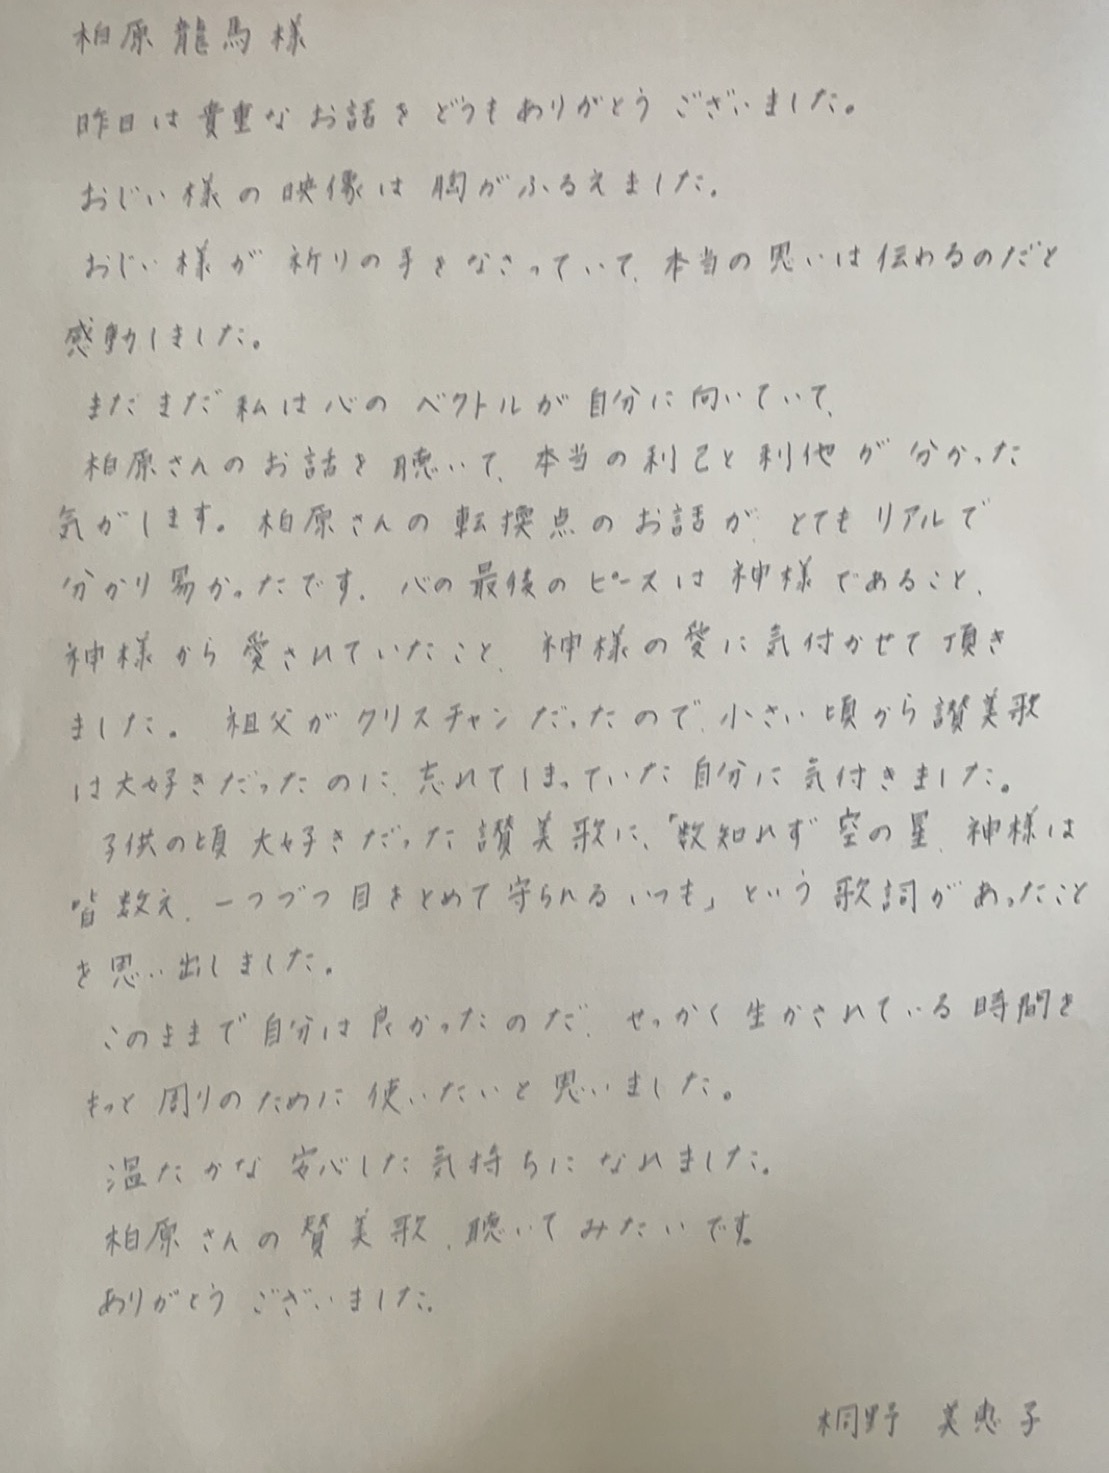 柏原龍馬様
昨日は貴重なお話をどうもありがとうございました。
おじい様の映像は胸がふるえました。
おじい様が祈りの手をなさっていて、本当の思いは伝わるのだと
感動しました。
まだまだ私は心のベクトルが自分に向いていて、
柏原さんのお話を聴いて、本当の利己と利他が分かった
気がします。柏原さんの転換点のお話が、とてもリアルで
分かり易かったです。心の最後のピースは神様であること、
神様から愛されていたこと、神様の愛に気付かせて頂き
ました。祖父がクリスチャンだったので、小さい頃から讃美歌
は大好きだったのに、忘れてしまっていた自分に気付きました。
子供の頃大好きだった讃美歌に、「数知れず空の星、神様は
皆数え、一つづつ目をとめて守られるいつも」という歌詞があったこと
を思い出しました。
このままで自分は良かったのだ、せっかく生かされている時間を
もっと周りのために使いたいと思いました。
温たかな安心した気持ちになれました。
柏原さんの賛美歌、聴いてみたいです。
ありがとうございました。
桐野 美恵子